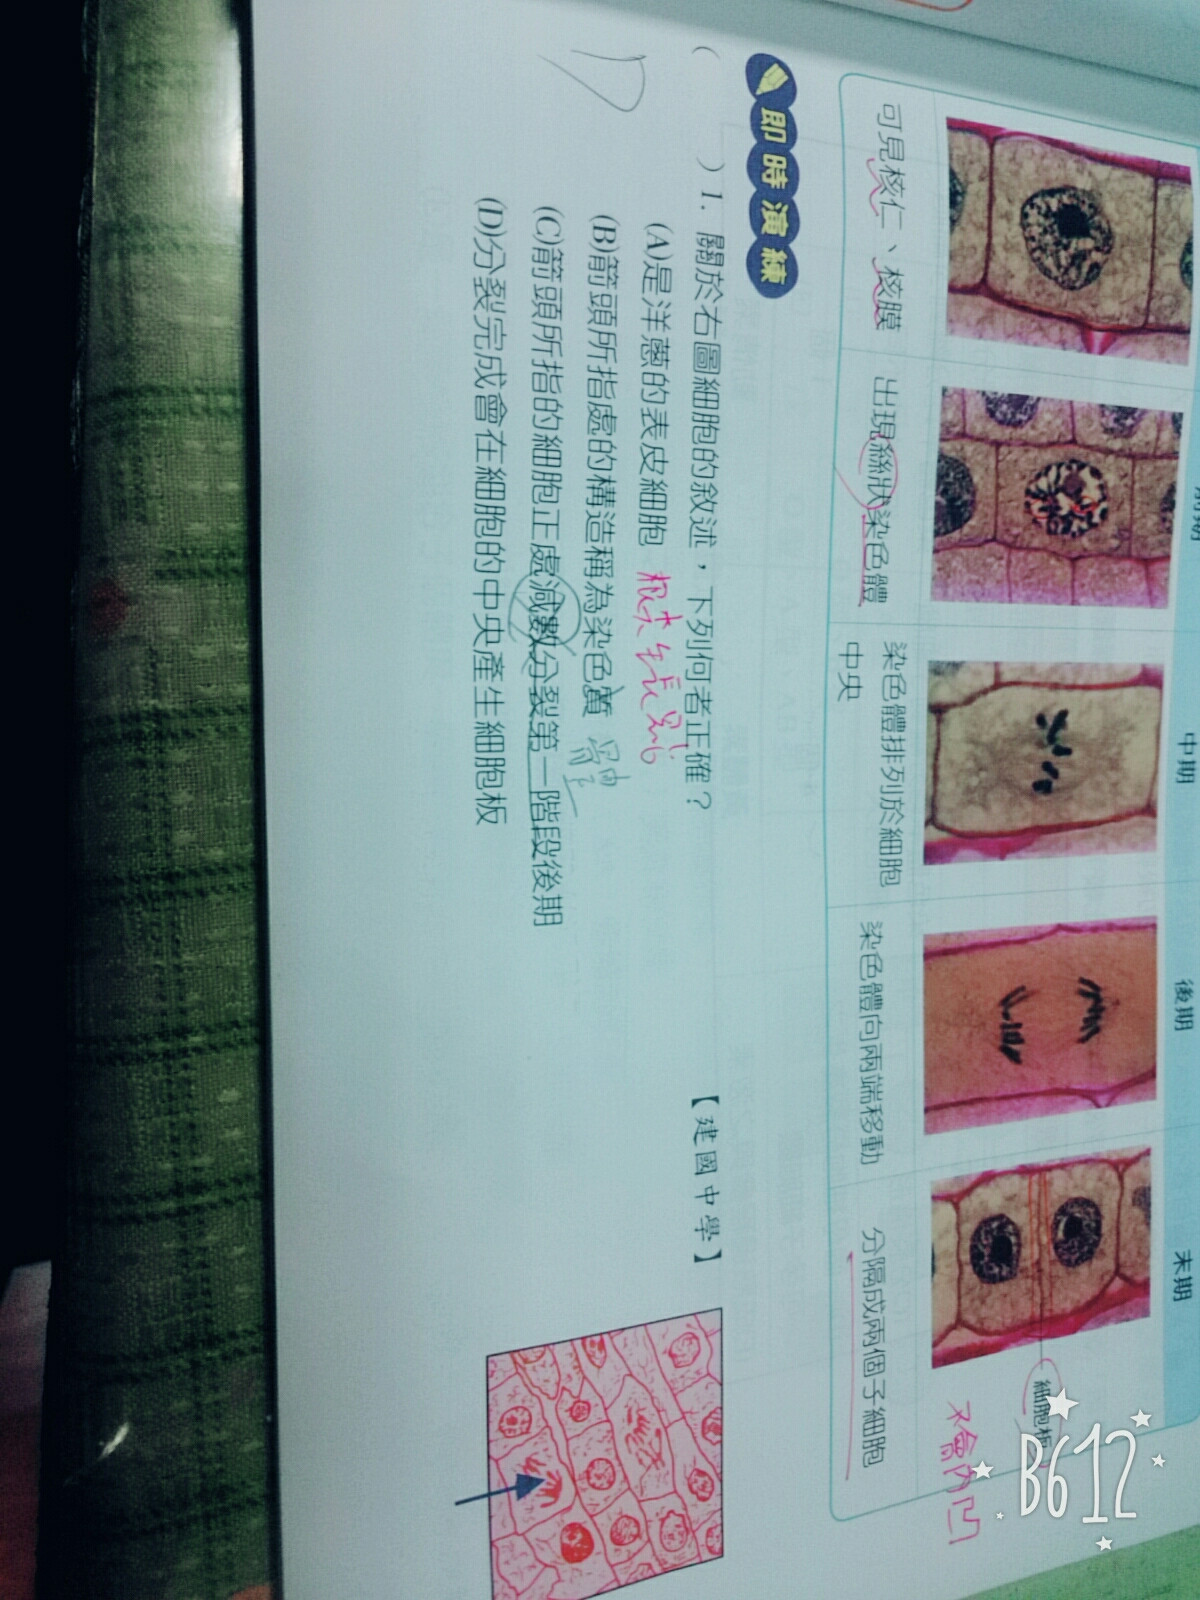 中期
後期
末期
細胞板
不會內凹
可見核仁、核膜
出現絲狀染色體
染色體排列於細胞
中央
染色體向兩端移動
分隔成兩個子細胞
即時演練
( D ) 1. 關於右圖細胞的敘述，下列何者正確？ 【建國中學】
(A)是洋蔥的表皮細胞 根尖生長點
(B)箭頭所指處的構造稱為染色質 體
(C)箭頭所指的細胞正處減數分裂第一階段後期
(D)分裂完成會在細胞的中央產生細胞板
B612